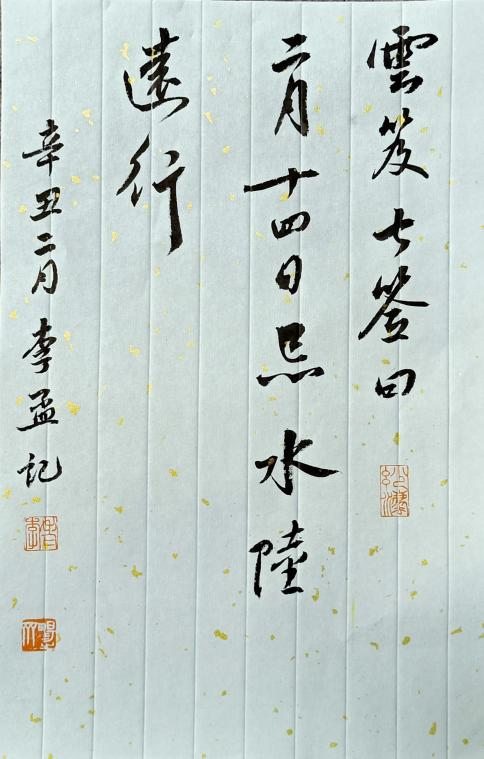 雲笈七签曰
二月十四日忌水陸
遠行
辛丑二月李孟記